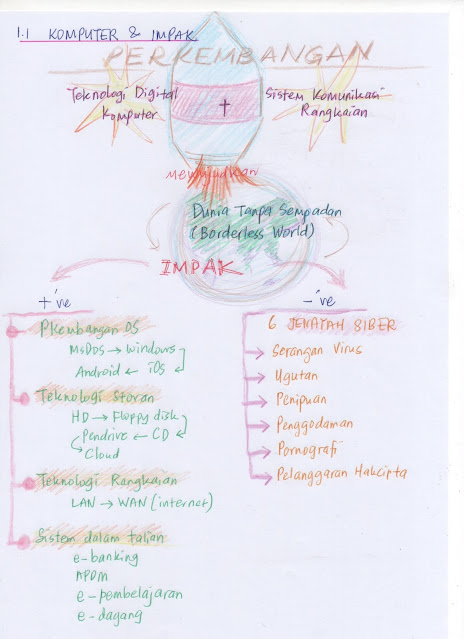 1.1 KOMPUTER & IMPAK
PERKEMBANGAN
Teknologi Digital
Komputer
+
Sistem Komunikasi
Rangkaian
Mewujudkan
Dunia Tanpa Sempadan
(Borderless World)
IMPAK
+'ve
PKembangan OS
MsDOS → Windows
Android ← iOS
Teknologi Storan
HD → Floppy disk
Pendrive ← CD
Cloud
Teknologi Rangkaian
LAN → WAN (internet)
Sistem dalam talian
e-banking
APDM
e-pembelajaran
e-dagang
-'ve
6 JENAYAH SIBER
Serangan Virus
Ugutan
Penipuan
Penggodaman
Pornografi
Pelanggaran Hakcipta